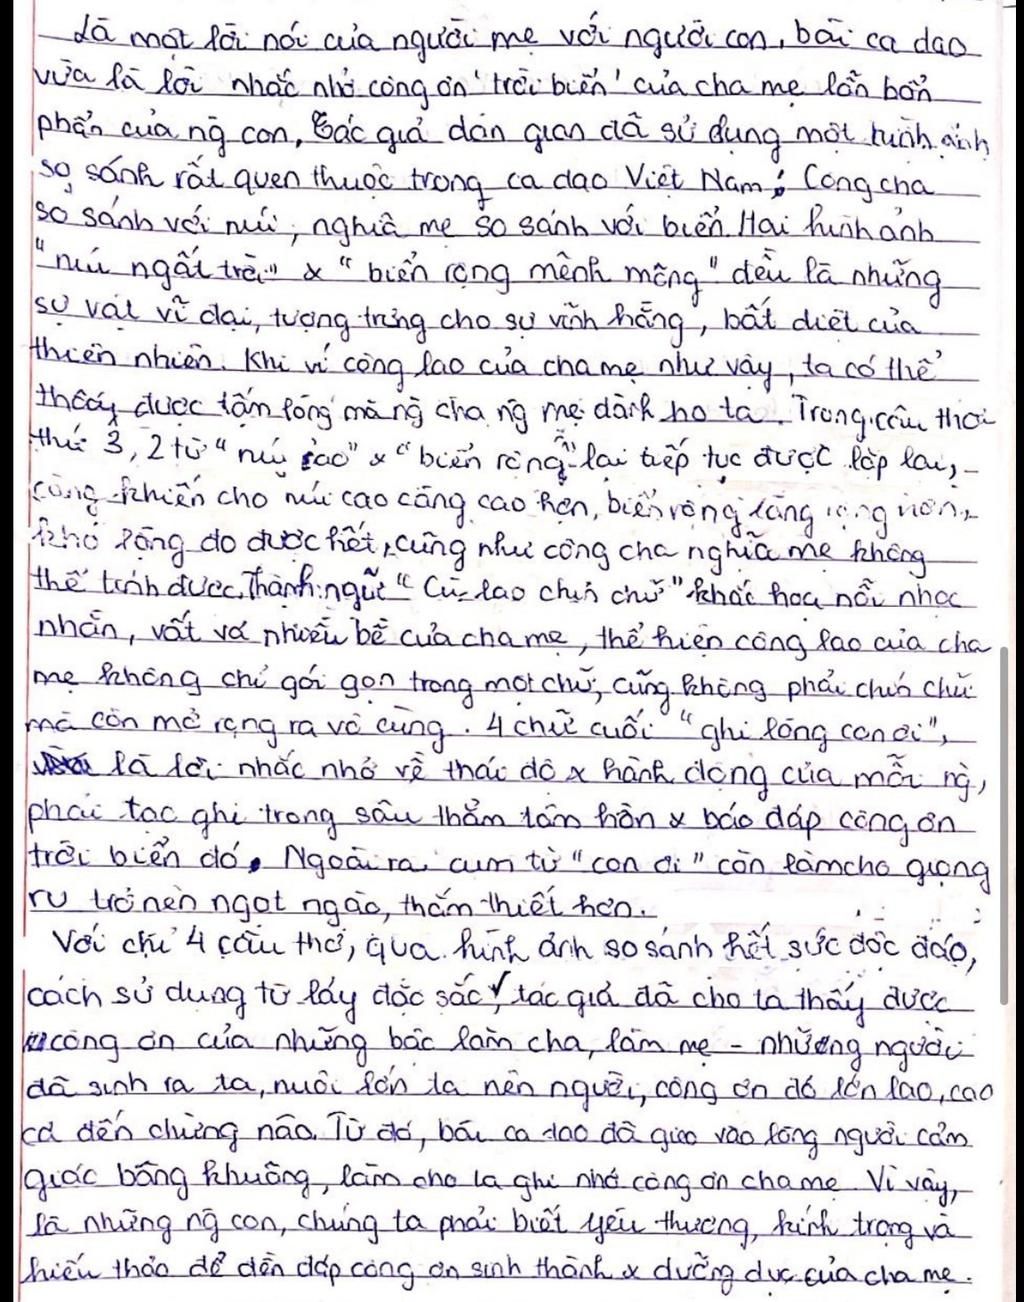 Là một lời nói của người mẹ với người con, bài ca dao
vừa là lời nhắc nhở công ơn 'trời biển' của cha mẹ lẫn bổn
phận của ng con, Tác giả dân gian đã sử dụng một hình ảnh
so sánh rất quen thuộc trong ca dao Việt Nam: Công cha
so sánh với núi, nghĩa mẹ so sánh với biển. Hai hình ảnh
"núi ngất trời" & "biển rộng mênh mông" đều là những
sự vật vĩ đại, tượng trưng cho sự vĩnh hằng, bất diệt của
thiên nhiên. Khi ví công lao của cha mẹ như vậy, ta có thể
thấy được tấm lòng mà ng cha ng mẹ dành ho ta. Trong câu thơ
thứ 3, 2 từ "núi cao" & "biển rộng" lại tiếp tục được lặp lại,
càng khiến cho núi cao càng cao hơn, biển rộng càng rộng hơn,
khó lòng đo được hết, cũng như công cha nghĩa mẹ không
thể tính được. Thành ngữ "Cù lao chín chữ" khắc hoạ nỗi nhọc
nhằn, vất vả nhiều bề của cha mẹ, thể hiện công lao của cha
mẹ không chỉ gói gọn trong một chữ, cũng không phải chín chữ
mà còn mở rộng ra vô cùng. 4 chữ cuối "ghi lòng con ơi",
là lời nhắc nhở về thái độ & hành động của mỗi ng,
phải tạc ghi trong sâu thẳm tâm hồn & báo đáp công ơn
trời biển đó. Ngoài ra, cụm từ "con ơi" còn làm cho giọng
ru trở nên ngọt ngào, thắm thiết hơn.
Với chỉ 4 câu thơ, qua hình ảnh so sánh hết sức độc đáo,
cách sử dụng từ láy đặc sắc, tác giả đã cho ta thấy được
công ơn của những bậc làm cha, làm mẹ - những người
đã sinh ra ta, nuôi lớn ta nên người, công ơn đó lớn lao, cao
cả đến chừng nào. Từ đó, bài ca dao đã gieo vào lòng người cảm
giác bâng khuâng, làm cho ta ghi nhớ công ơn cha mẹ. Vì vậy,
là những ng con, chúng ta phải biết yêu thương, kính trọng và
hiếu thảo để đền đáp công ơn sinh thành & dưỡng dục của cha mẹ.